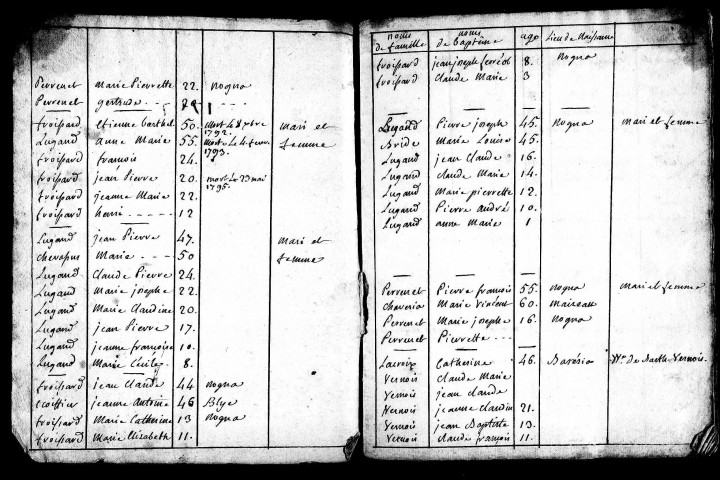 Perrenet Marie Pierrette 22. Nogna
Perrenet gertrude
froissard Etienne 50. Mort Le
1792. Mari et
Lugand anne Marie 55. Mort Le 4
1793. femme
froissard francois 24.
froissard jean Pierre 20. mort Le 23 mai
1795.
froissard jeanne Marie 22.
froissard 12
Lugand jean Pierre 47. Mari et
chevassus Marie 50 femme
Lugand Claude Pierre 24.
Lugand Marie josephe 22.
Lugand Marie Claudine 20.
Lugand jean Pierre 17.
Lugand jeanne françoise 10.
Lugand Marie Cecile 8.
froissard jean Claude 44 Nogna
jeanne Antoine 46 Blye
froissard Marie Catherine 13 Nogna
froissard Marie Elizabeth 11.
noms
de famille noms
de Baptême age Lieu de Naissance
froissard jean joseph 8. Nogna
froissard Claude Marie 3
Lugand Pierre joseph 45. Nogna Mari et femme
Bride Marie Louise 45.
Lugand jean Claude 16.
Lugand Claude Marie 14.
Lugand Marie pierrette 12.
Lugand Pierre André 10.
Lugand anne Marie 1
Perrenet Pierre francois 55. Nogna Mari et femme
Marie vincent 60.
Perrenet Marie josephe 16. Nogna
Perrenet Pierrette
Lacroix Catherine 46. Ve. De Vernois.
Vernois Claude Marie
Vernois jean Claude
Vernois jeanne Claudin 21.
Vernois jean Baptiste 13.
Vernois Claude françois 11.